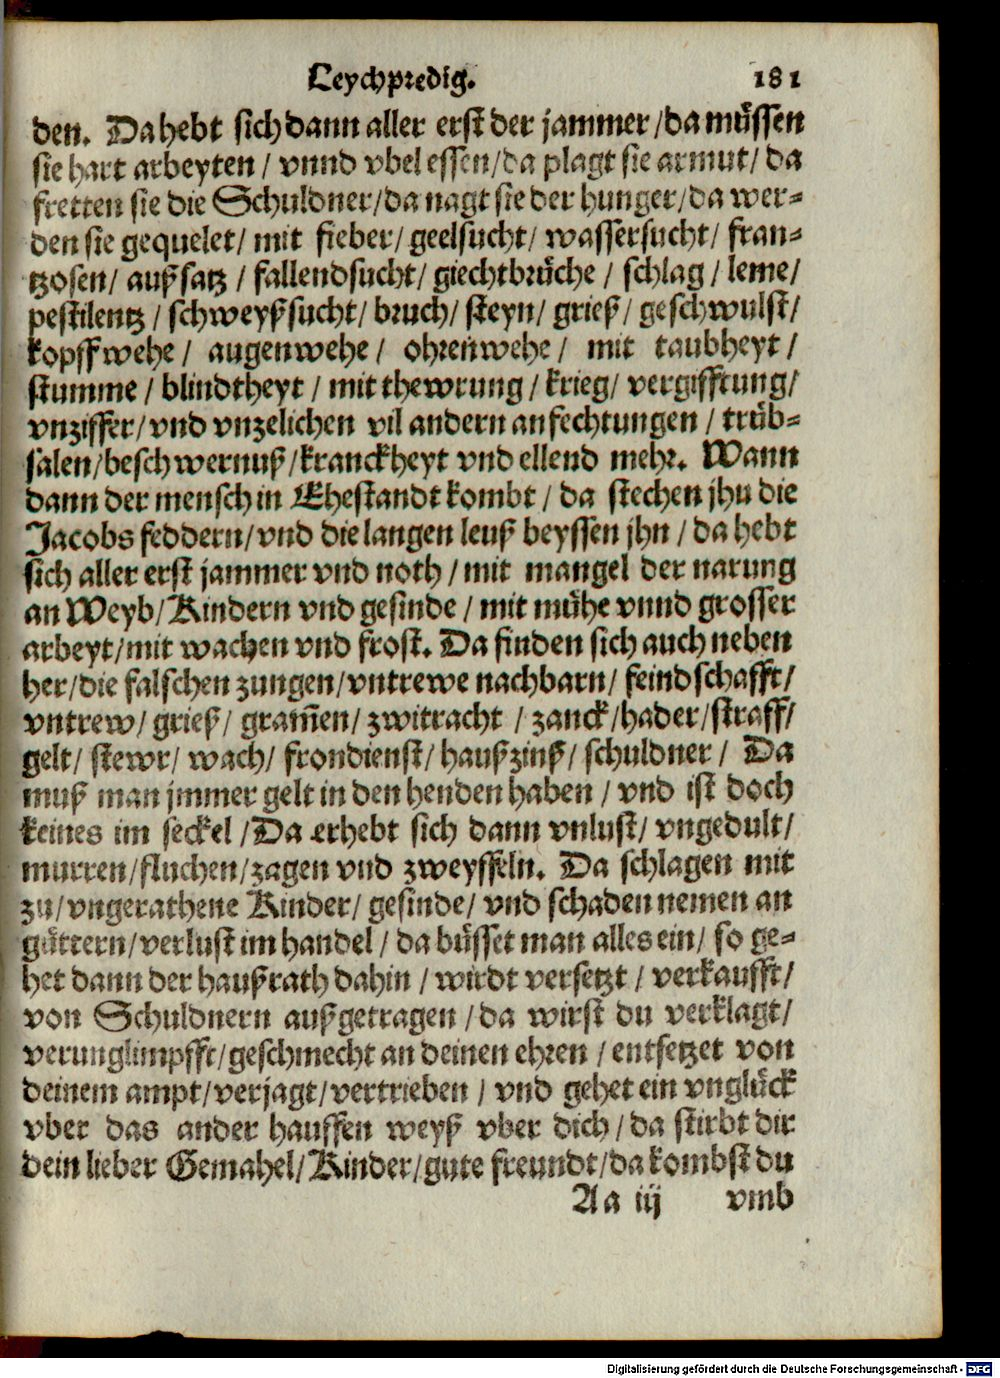 Leychpredig. 181
den. Da hebt sich dann aller erst der jammer / da müssen
sie hart arbeyten / vnnd vbel essen / da plagt sie armut / da
fretten sie die Schuldner / da nagt sie der hunger / da wer-
den sie gequelet / mit fieber / geelsucht / wassersucht / fran-
tzosen / außsatz / fallendsucht / giechtbrüche / schlag / leme /
pestilentz / schweyßsucht / bruch / steyn / grieß / geschwulst /
kopffwehe / augenwehe / ohrenwehe / mit taubheyt /
stumme / blindtheyt / mit thewrung / krieg / vergifftung /
vnziffer / vnd vnzelichen vil andern anfechtungen / trüb-
salen / beschwernuß / kranckheyt vnd ellend mehr. Wann
dann der mensch in Ehestandt kombt / da stechen jhn die
Jacobs feddern / vnd die langen leuß beyssen jhn / da hebt
sich aller erst jammer vnd noth / mit mangel der narung
an Weyb / Kindern vnd gesinde / mit mühe vnnd grosser
arbeyt / mit wachen vnd frost. Da finden sich auch neben
her / die falschen zungen / vntrewe nachbarn / feindschafft /
vntrew / grieß / gram̃en / zwitracht / zanck / hader / straff /
gelt / stewr / wach / frondienst / haußzinß / schuldner / Da
muß man jmmer gelt in den henden haben / vnd ist doch
keines im seckel / Da erhebt sich dann vnlust / vngedult /
murren / fluchen / zagen vnd zweyffeln. Da schlagen mit
zu / vngerathene Kinder / gesinde / vnd schaden nemen an
güttern / verlust im handel / da büsset man alles ein / so ge-
het dann der haußrath dahin / wirdt versetzt / verkaufft /
von Schuldnern außgetragen / da wirst du verklagt /
verunglimpfft / geschmecht an deinen ehren / entsetzet von
deinem ampt / verjagt / vertrieben / vnd gehet ein vnglück
vber das ander hauffen weyß vber dich / da stirbt dir
dein lieber Gemahel / Kinder / gute freundt / da kombst du
Aa iij vmb
Digitalisierung gefördert durch die Deutsche Forschungsgemeinschaft - DFG